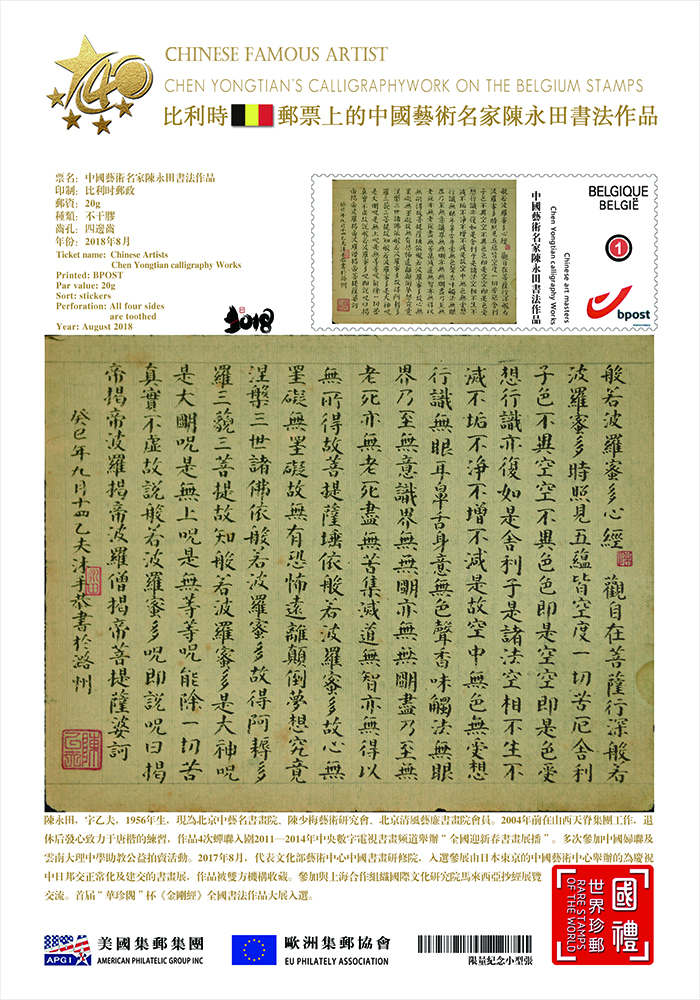 140
CHINESE FAMOUS ARTIST
CHEN YONGTIAN'S CALLIGRAPHYWORK ON THE BELGIUM STAMPS
比利時郵票上的中國藝術名家陳永田書法作品
票名：中國藝術名家陳永田書法作品
印制：比利时郵政
郵資：20g
種類：不干膠
齒孔：四邊齒
年份：2018年8月
Ticket name: Chinese Artists
Chen Yongtian calligraphy Works
Printed: BPOST
Par value: 20g
Sort: stickers
Perforation: All four sides
are toothed
Year: August 2018
2018
BELGIQUE
BELGIË
1
bpost
Chinese art masters
Chen Yongtian calligraphy Works
中國藝術名家陳永田書法作品
般若波羅蜜多心經 觀自在菩薩行深般若
波羅蜜多時照見五蘊皆空度一切苦厄舍利
子色不異空空不異色色即是空空即是色受
想行識亦復如是舍利子是諸法空相不生不
滅不垢不淨不增不減是故空中無色無受想
行識無眼耳鼻舌身意無色聲香味觸法無眼
界乃至無意識界無無明亦無無明盡乃至無
老死亦無老死盡無苦集滅道無智亦無得以
無所得故菩提薩埵依般若波羅蜜多故心無
罣礙無罣礙故無有恐怖遠離顛倒夢想究竟
涅槃三世諸佛依般若波羅蜜多故得阿耨多
羅三藐三菩提故知般若波羅蜜多是大神呪
是大明呪是無上呪是無等等呪能除一切苦
真實不虛故說般若波羅蜜多呪即說呪曰揭
帝揭帝波羅揭帝波羅僧揭帝菩提薩婆訶
癸巳年九月十四乙夫沐手恭書於潞州
陳永田，字乙夫，1956年生，現為北京中藝名書畫院、陳少梅藝術研究會、北京清風藝廉書畫院會員。2004年前在山西天脊集團工作，退
休后發心致力于唐楷的練習，作品4次蟬聯入圍2011—2014年中央數字電視書畫頻道舉辦“全國迎新春書畫展播”。多次參加中國婦聯及
雲南大理中學助教公益拍賣活動。2017年8月，代表文化部藝術中心中國書畫研修院，入選參展由日本東京的中國藝術中心舉辦的為慶祝
中日邦交正常化及建交的書畫展，作品被雙方機構收藏。參加與上海合作組織國際文化研究院馬來西亞抄經展覽
交流。首屆“華珍閣”杯《金剛經》全國書法作品大展入選。
APGI
美國集郵集團
AMERICAN PHILATELIC GROUP INC
歐洲集郵協會
EU PHILATELY ASSOCIATION
限量紀念小型張
國禮
世界珍郵
RARE STAMPS
OF THE WORLD